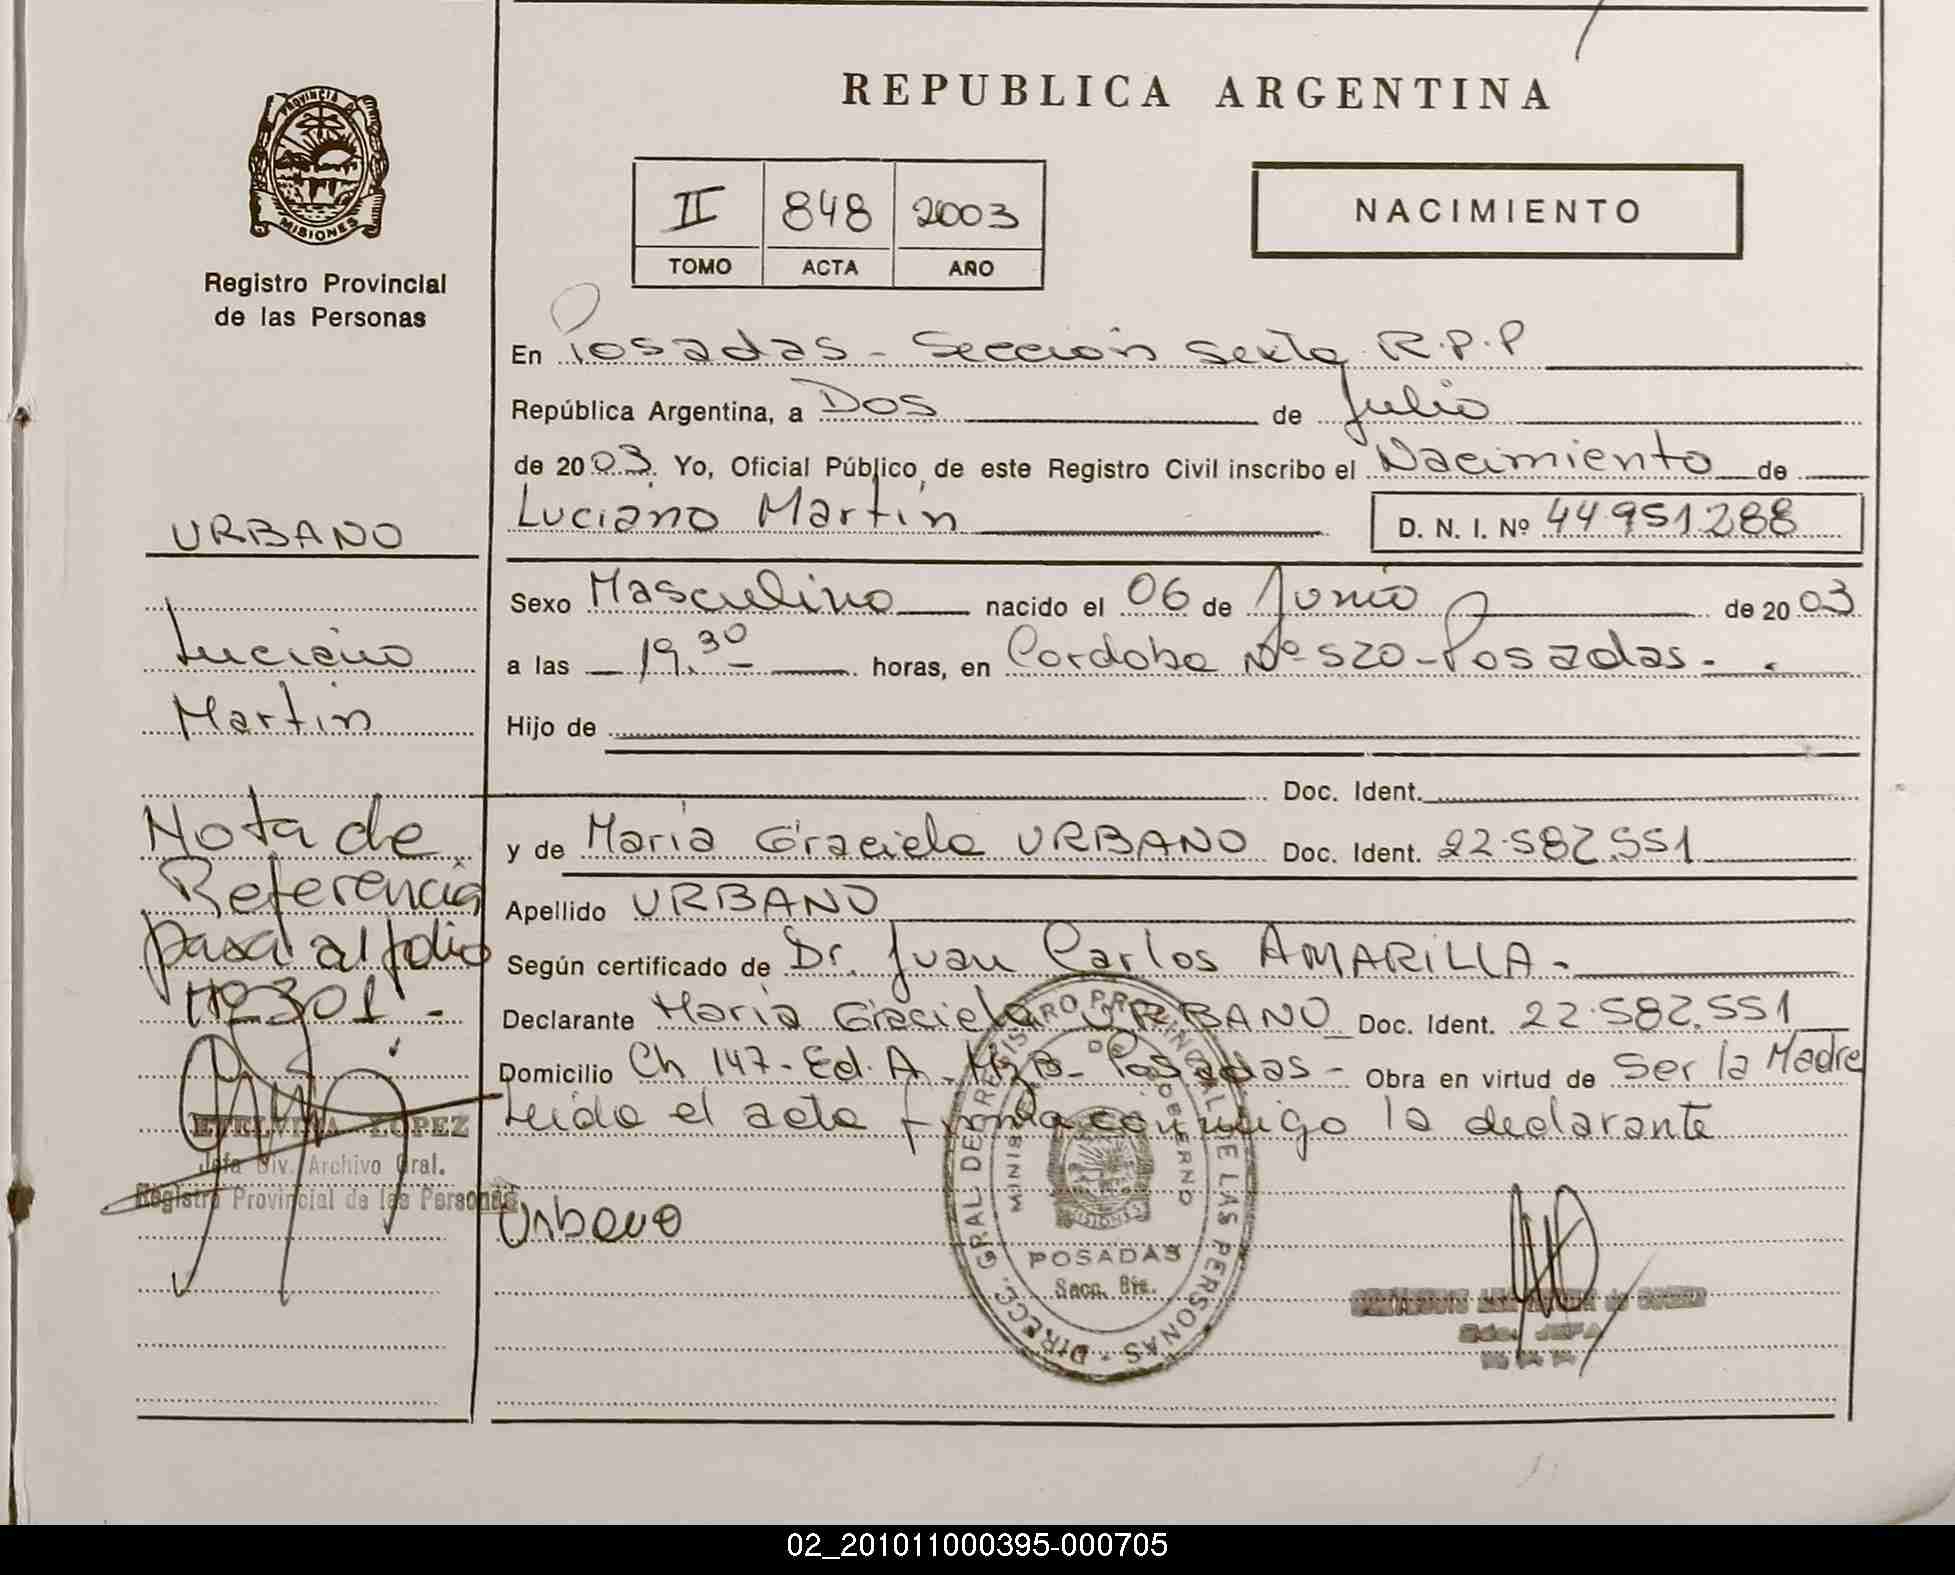 PROVINCIA DE
MISIONES
Registro Provincial
de las Personas
URBANO
Luciano
Martin
Nota de
Referencia
pasa al folio
Nº 301 -
ETELVINA LOPEZ
Jefa Div. Archivo Gral.
Registro Provincial de las Personas
REPUBLICA ARGENTINA
II 848 2003
TOMO ACTA AÑO
NACIMIENTO
En Posadas - Sección Sexta R.P.P
República Argentina, a Dos de Julio
de 2003. Yo, Oficial Público de este Registro Civil inscribo el Nacimiento de
Luciano Martin D. N. I. Nº 44.951.288
Sexo Masculino nacido el 06 de Junio de 2003
a las 19.30 horas, en Cordoba Nº 520 - Posadas -
Hijo de
Doc. Ident.
y de Maria Graciela URBANO Doc. Ident. 22.582.551
Apellido URBANO
Según certificado de Dr. Juan Carlos AMARILLA -
Declarante Maria Graciela URBANO Doc. Ident. 22.582.551
Domicilio Ch 147 - Ed. A - Mz B - Posadas - Obra en virtud de Ser la Madre
Leida el acta firma conmigo la declarante
Urbano
DIRECC. GRAL. DE REGISTRO PROVINCIAL DE LAS PERSONAS
MINIS DE GOBIERNO
POSADAS
Secc. 6ta.
JEFA
02_201011000395-000705